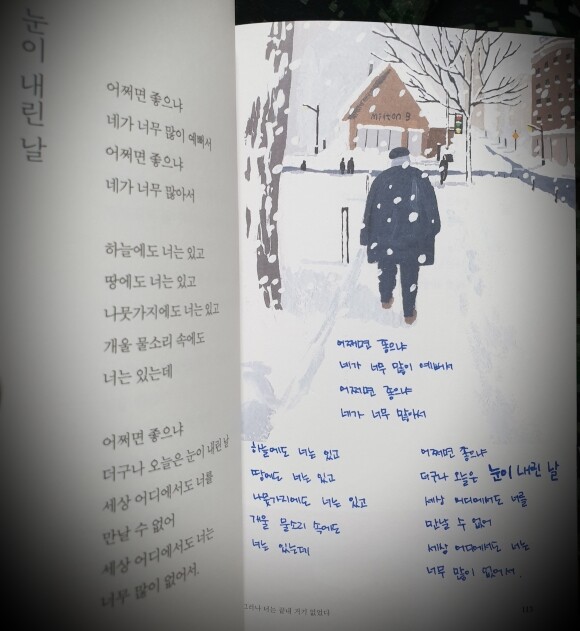 눈이 내린 날
어쩌면 좋으냐
네가 너무 많이 예뻐서
어쩌면 좋으냐
네가 너무 많아서
하늘에도 너는 있고
땅에도 너는 있고
나뭇가지에도 너는 있고
개울 물소리 속에도
너는 있는데
어쩌면 좋으냐
더구나 오늘은 눈이 내린 날
세상 어디에서도 너를
만날 수 없어
세상 어디에서도 너는
너무 많이 없어서.
어쩌면 좋으냐
네가 너무 많이 예뻐서
어쩌면 좋으냐
네가 너무 많아서
하늘에도 너는 있고
땅에도 너는 있고
나뭇가지에도 너는 있고
개울 물소리 속에도
너는 있는데
어쩌면 좋으냐
더구나 오늘은 눈이 내린 날
세상 어디에서도 너를
만날 수 없어
세상 어디에서도 너는
너무 많이 없어서.
그러나 너는 끝내 거기 없었다